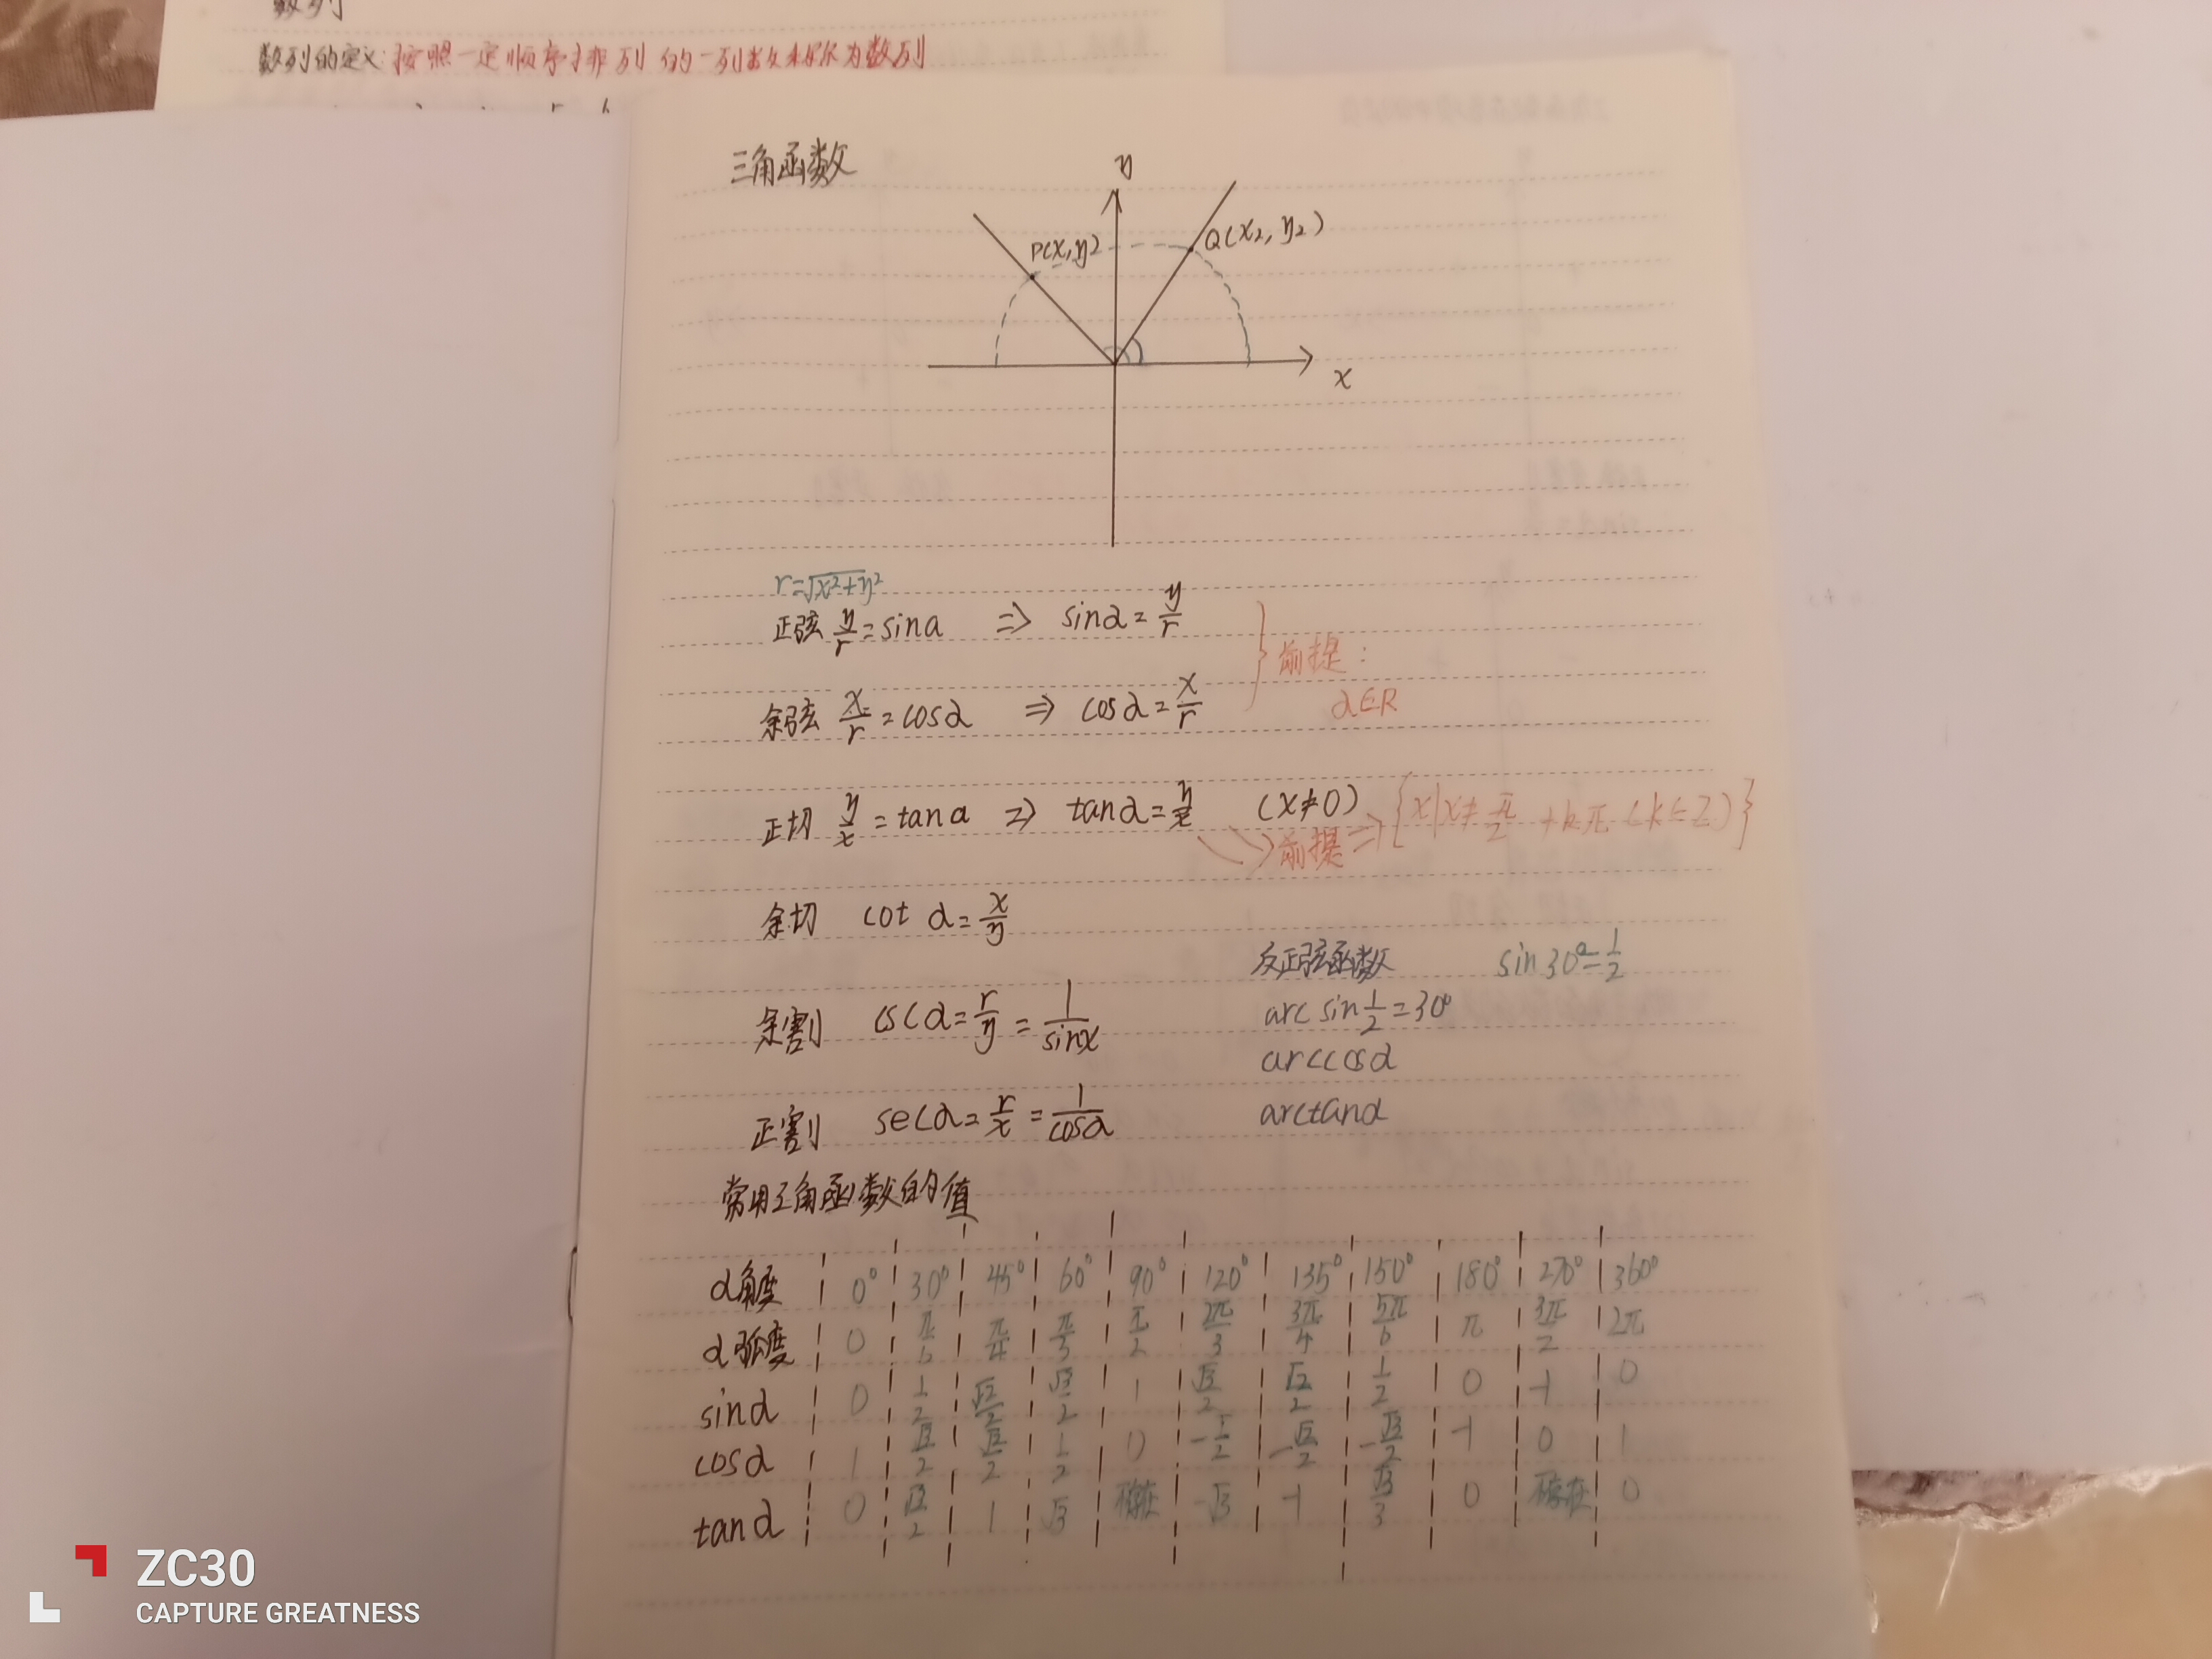 数列
数列的定义:按照一定顺序排列的一列数称为数列
三角函数
y
P(x,y²
Q(x₂,y₂)
x
r=√(x²+y²)
正弦 y/r=sina ⇒ sinα=y/r
余弦 x/r=cosα ⇒ cosα=x/r
}前提:
α∈R
正切 y/x=tanα ⇒ tanα=y/x (x≠0)
前提⇒{x|x≠π/2+kπ(k∈Z)}
余切 cot α=x/y
余割 cscα=r/y=1/sinx
正割 secα=r/x=1/cosα
反正弦函数 sin30°=1/2
arcsin1/2=30°
arccosα
arctanα
常用三角函数的值
α角度 0° 30° 45° 60° 90° 120° 135° 150° 180° 270° 360°
α弧度 0 π/6 π/4 π/3 π/2 2π/3 3π/4 5π/6 π 3π/2 2π
sinα 0 1/2 √2/2 √3/2 1 √3/2 √2/2 1/2 0 -1 0
cosα 1 √3/2 √2/2 1/2 0 -1/2 -√2/2 -√3/2 -1 0 1
tanα 0 √3/2 1 √3 不存在 -√3 -1 √3/3 0 不存在 0
ZC30
CAPTURE GREATNESS